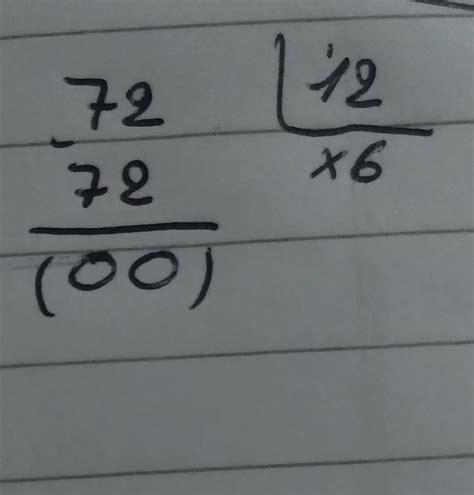 72 12
- 72 x6
(00)